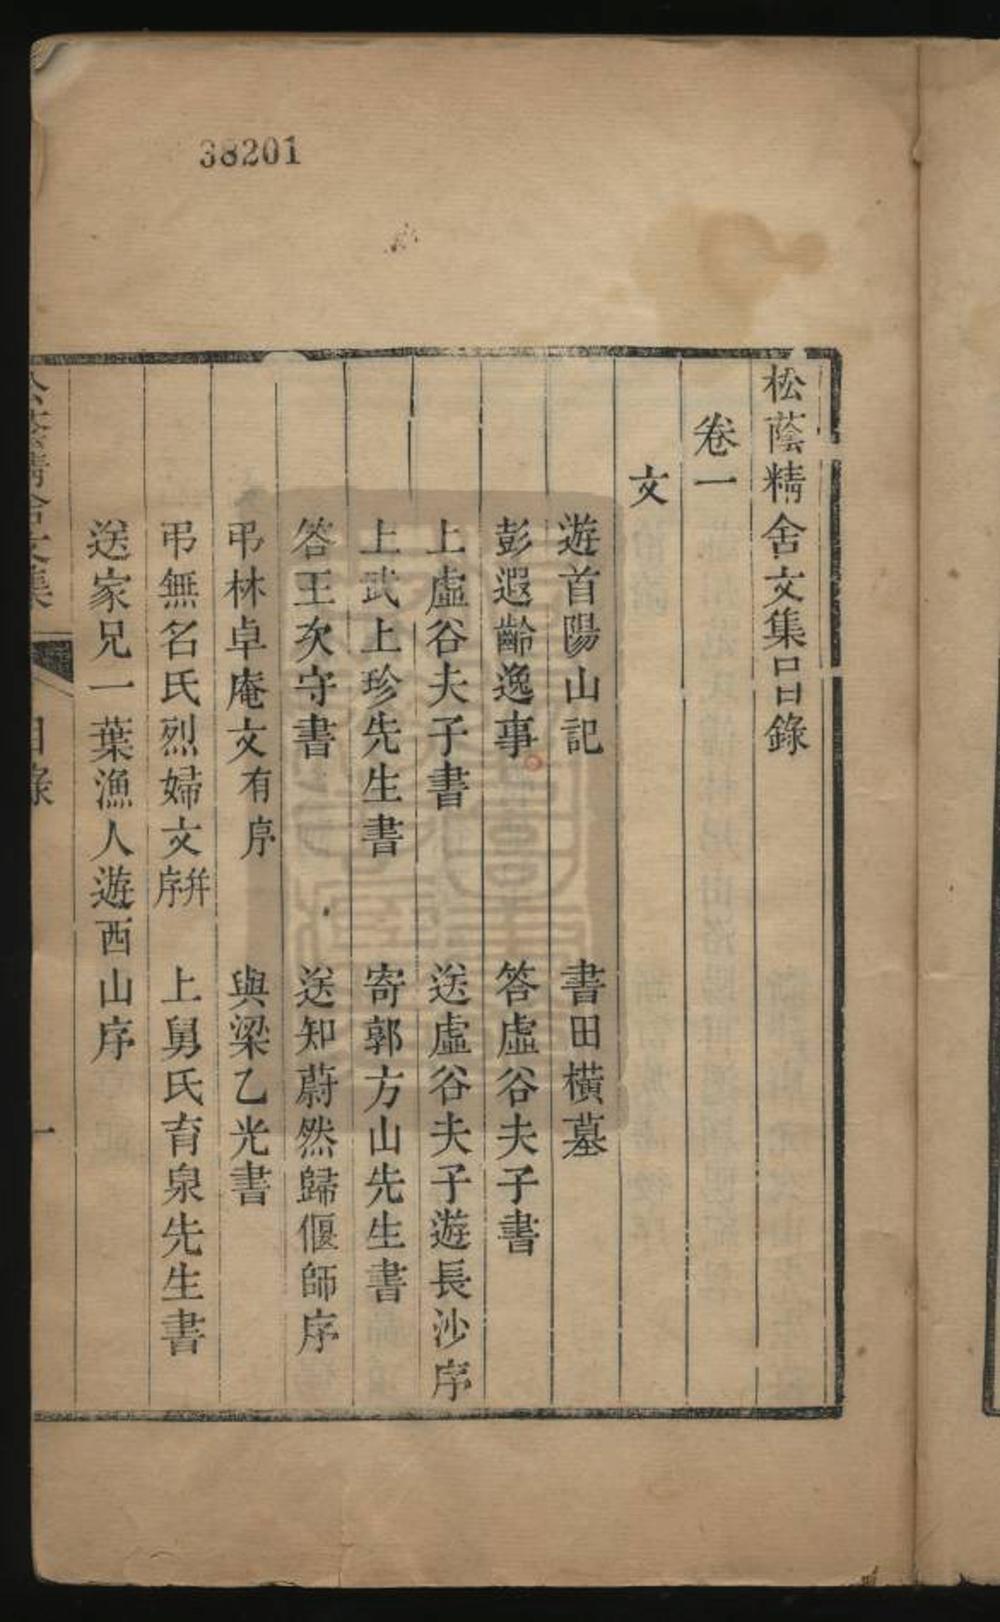 38201
松蔭精舍文集目錄
卷一
文
遊首陽山記 書田橫墓
彭遐齡逸事 答虛谷夫子書
上虛谷夫子書 送虛谷夫子遊長沙序
上武上珍先生書 寄郭方山先生書
答王次守書 送知蔚然歸偃師序
弔林卓庵文有序 與梁乙光書
弔無名氏烈婦文并序 上舅氏育泉先生書
送家兄一葉漁人遊西山序
松蔭精舍文集 目錄 一